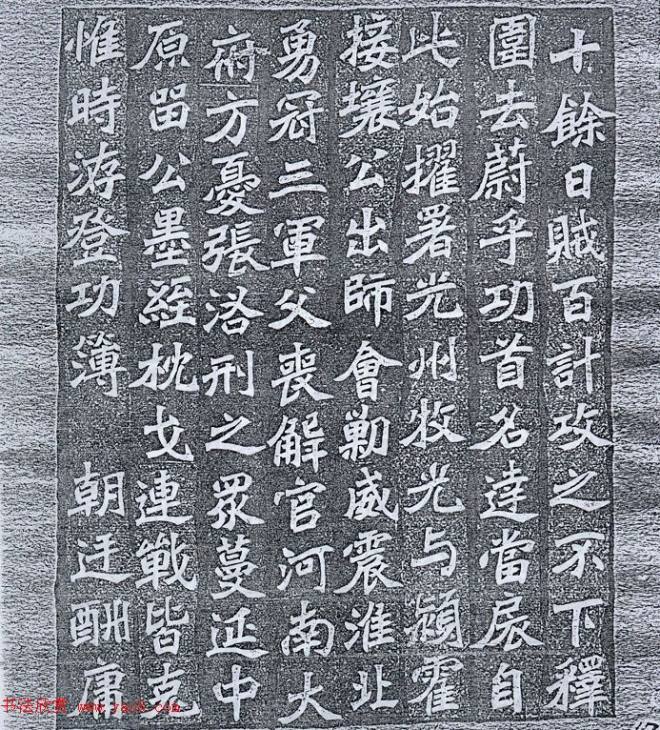 十餘日賊百計攻之不下釋
圍去蔚乎功首名達當扆自
此始擢署光州牧光与潁霍
接攘公出師會勦威震淮北
勇冠三軍父喪解官河南大
府方憂張洛刑之眾蔓延中
原畱公墨絰枕戈連戰皆克
惟時游登功簿 朝迋酬庸
书法欣赏 www.yac8.com